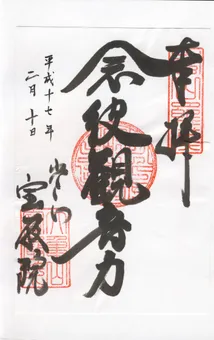 奉拝
念彼観音力
平成十七年
二月十日
宝厳院